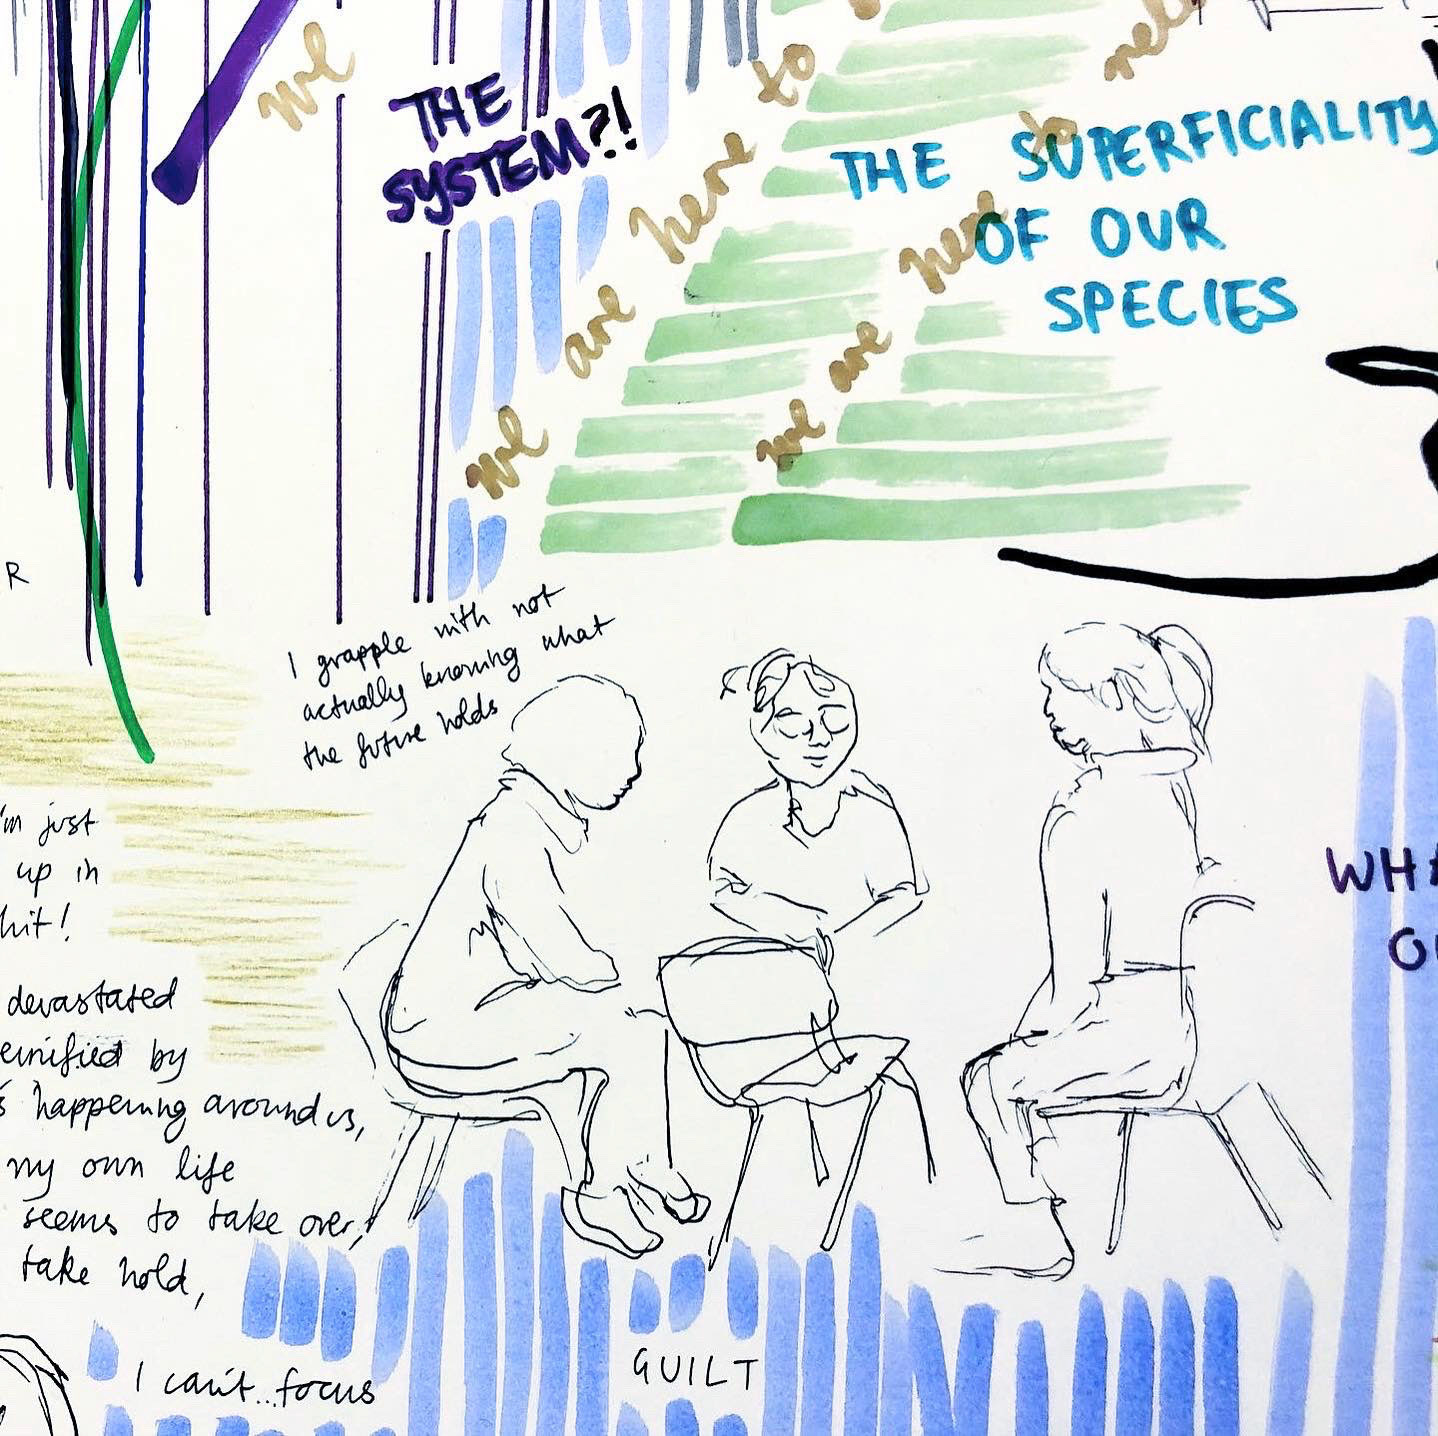 we
THE
SYSTEM?!
we are here to
we are here to
THE SUPERFICIALITY
OF OUR
SPECIES
R
I grapple with not
actually knowing what
the future holds
I'm just
up in
devastated
by
happening around us,
my own life
seems to take over,
take hold,
I can't...focus
GUILT